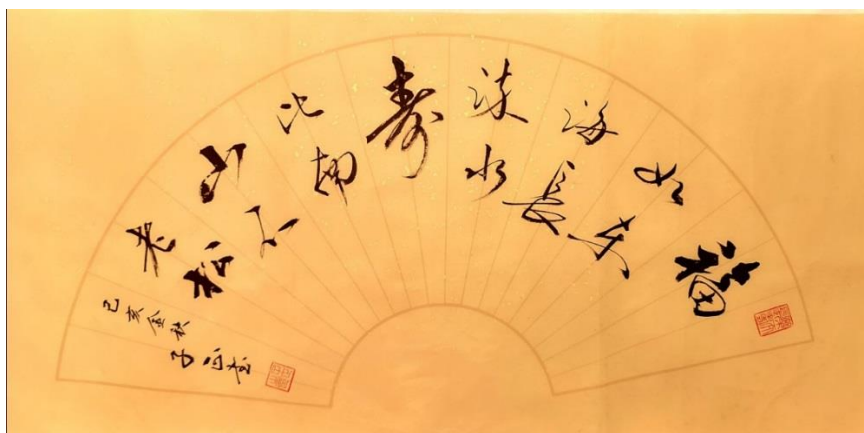 福
如东
海長
流水
寿
比南
山不
老松
己亥金秋
子书